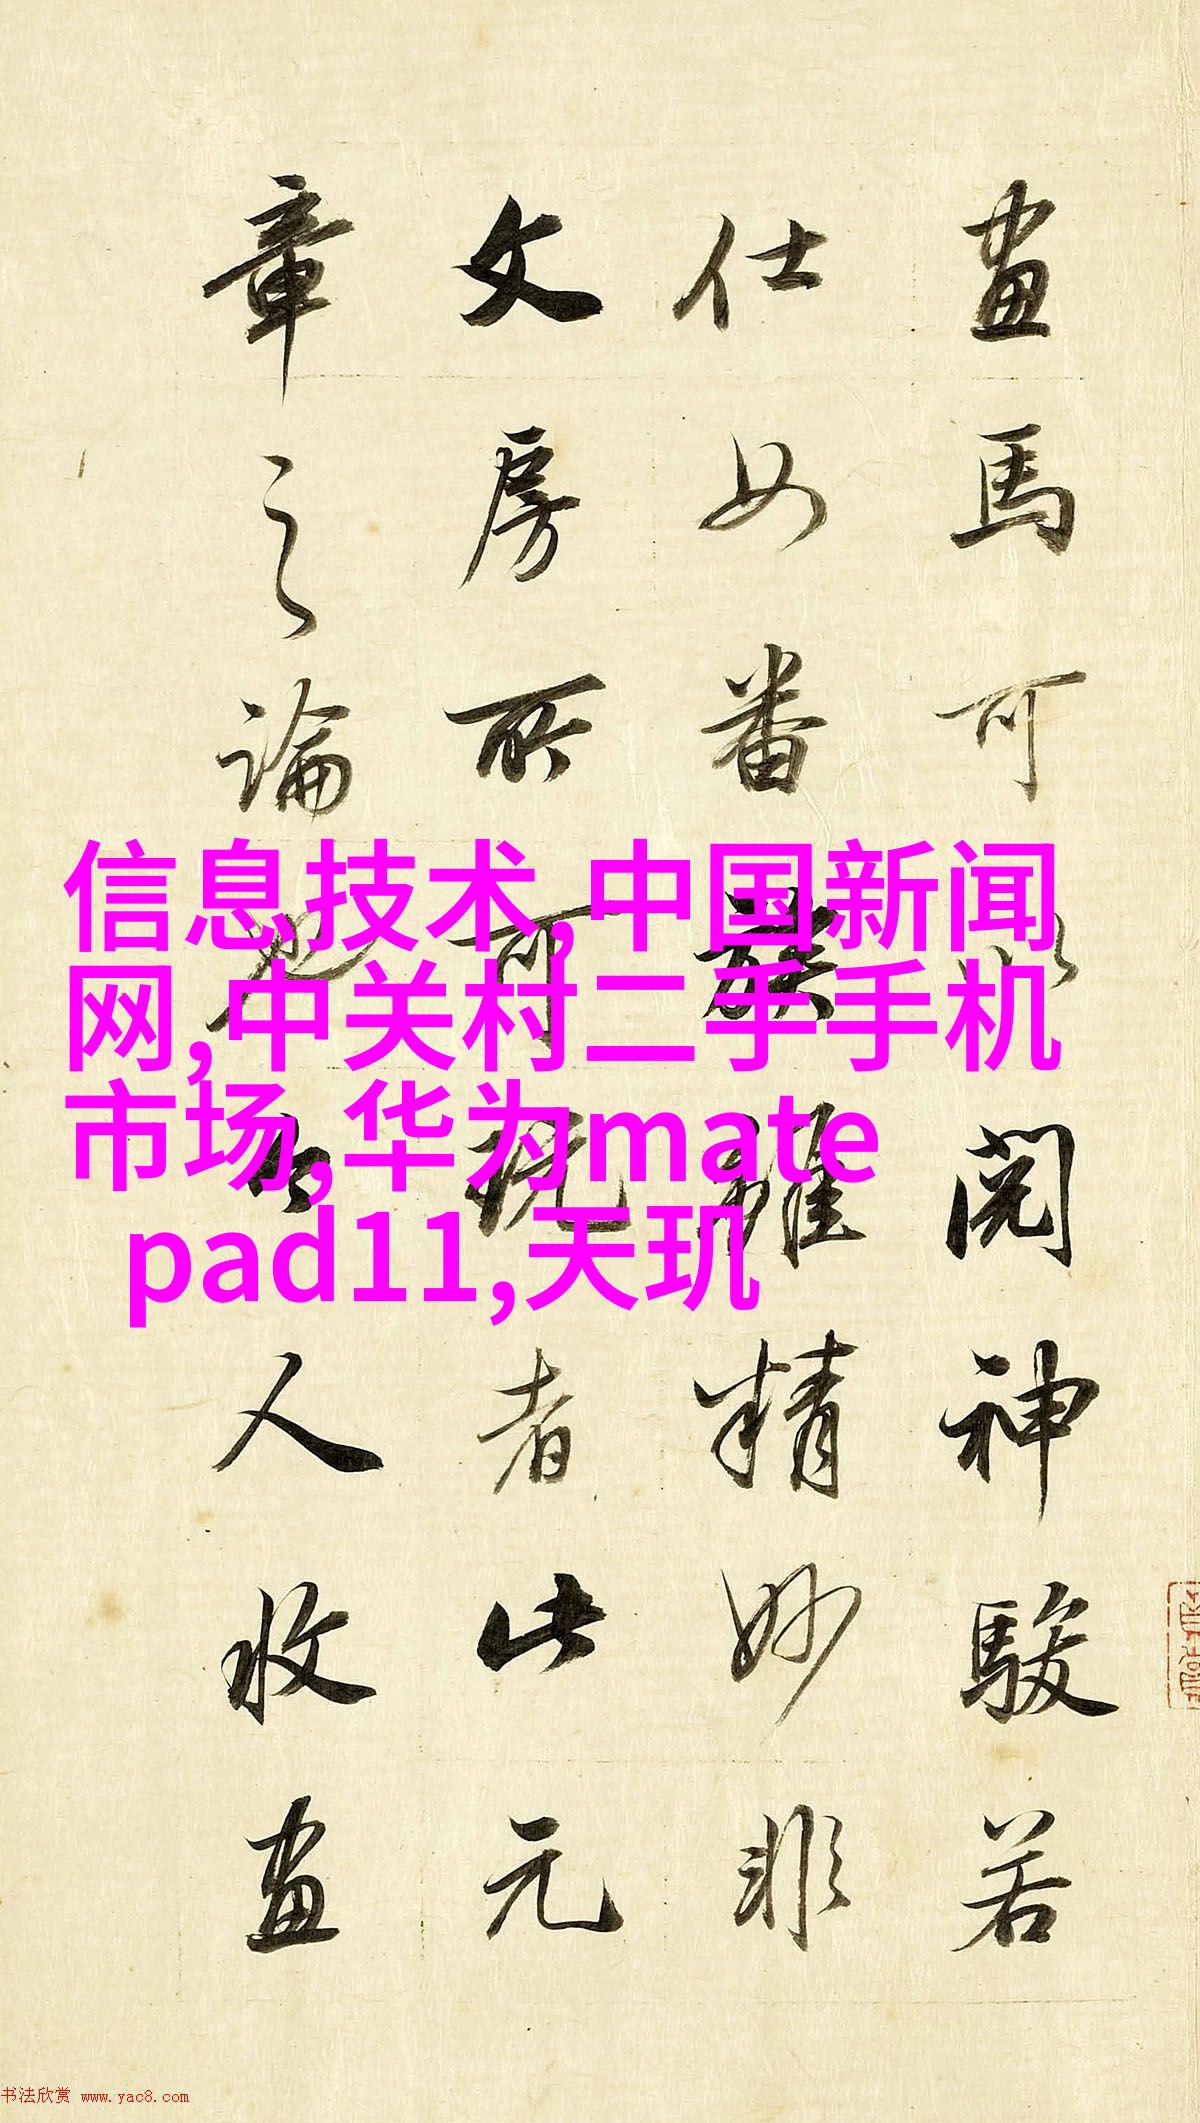 畫馬可以閱神駿若
仕女番族雖精妙非
文房所可玩者此元
章之論也人收畫
信息技术,中国新闻
网,中关村二手手机
市场,华为mate
pad11,天玑
书法欣赏 www.yac8.com